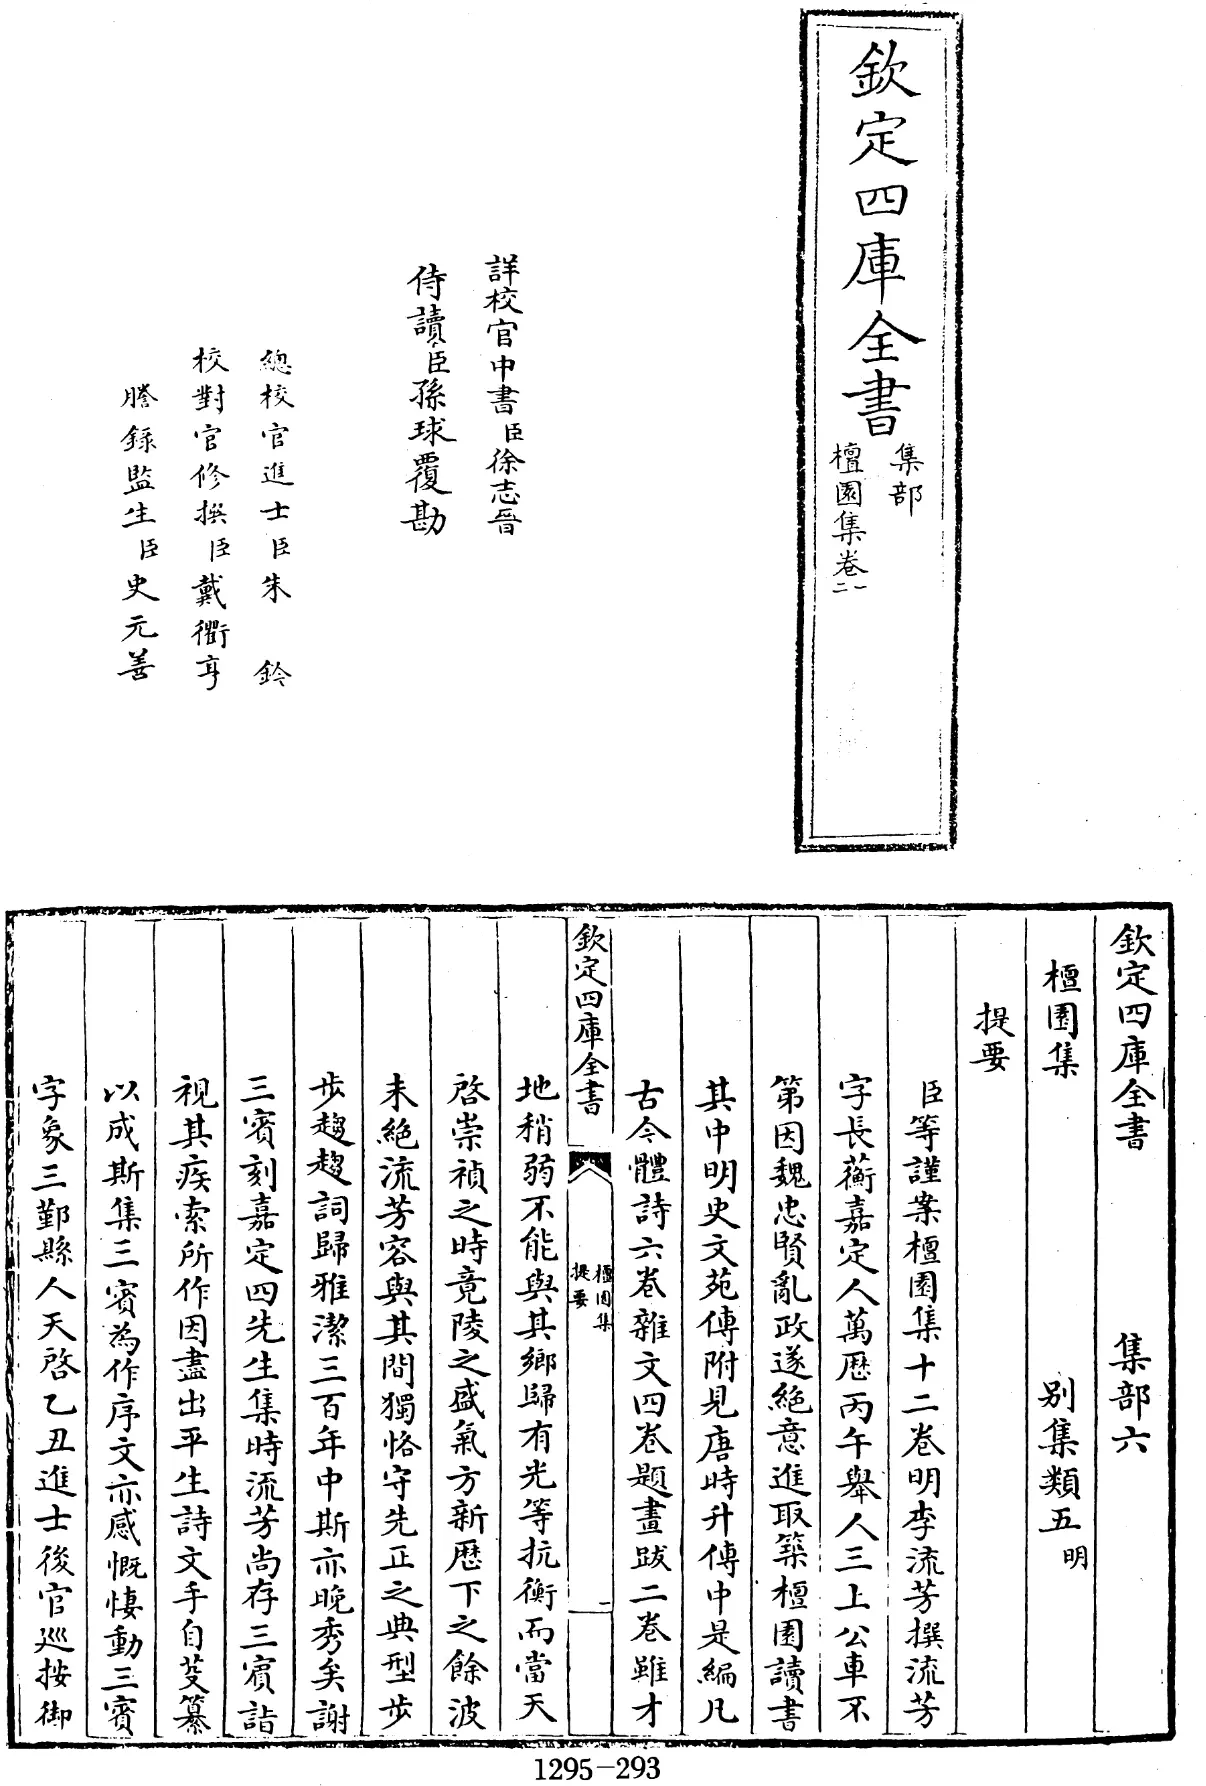 欽定四庫全書
集部
檀園集卷一
二
詳校官中書臣徐志晉
侍讀臣孫球覆勘
總校官進士臣朱鈐
校對官修撰臣戴衢亨
謄錄監生臣史元善
欽定四庫全書 集部六
檀園集 别集類五明
提要
臣等謹案檀園集十二卷明李流芳撰流芳
字長蘅嘉定人萬厯丙午舉人三上公車不
第因魏忠賢亂政遂絶意進取築檀園讀書
其中明史文苑傳附見唐時升傳中是編凡
古今體詩六卷雜文四卷題畫跋二卷雖才
欽定四庫全書
檀園集
提要
一
地稍弱不能與其鄉歸有光等抗衡而當天
啓崇禎之時竟陵之盛氣方新厯下之餘波
未絶流芳容與其間獨恪守先正之典型步
步趨趨詞歸雅潔三百年中斯亦晚秀矣謝
三賓刻嘉定四先生集時流芳尚存三賓詣
視其疾索所作因盡出平生詩文手自芟纂
以成斯集三賓為作序文亦感慨悽動三賓
字象三鄞縣人天啓乙丑進士後官巡按御
1295-293